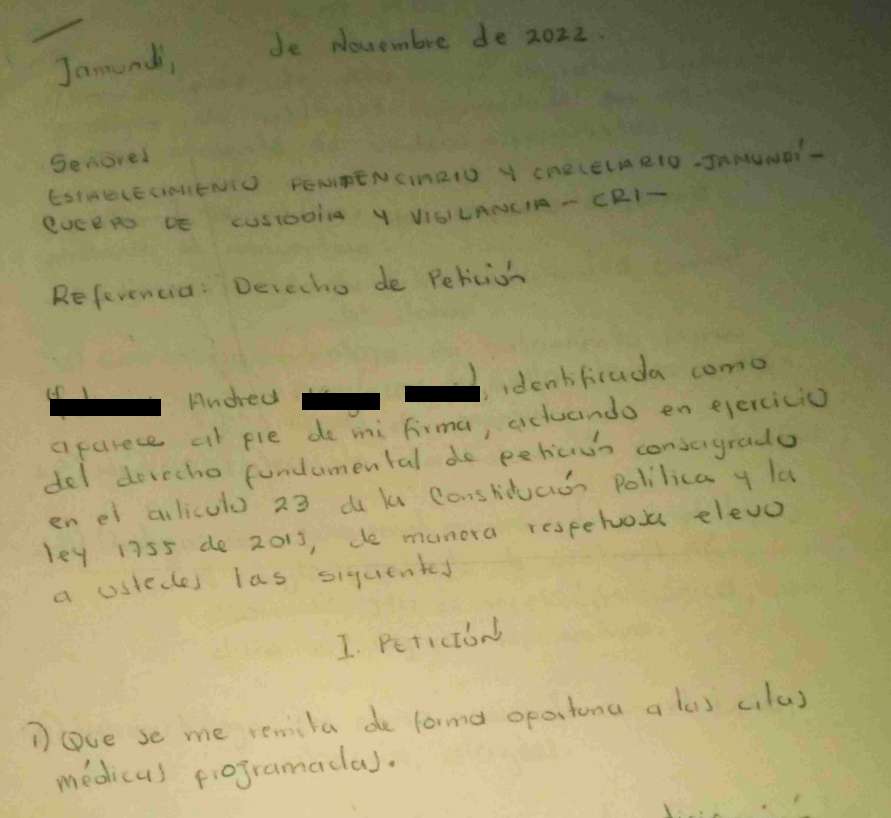 Jamundí, de Noviembre de 2022.
Señores
ESTABLECIMIENTO PENITENCIARIO Y CARCELARIO - JAMUNDÍ -
CUERPO DE CUSTODIA Y VIGILANCIA - CRI -
Referencia: Derecho de Petición
Andrea , identificada como
aparece al pie de mi firma, actuando en ejercicio
del derecho fundamental de petición consagrado
en el articulo 23 de la Constitución Política y la
ley 1755 de 2015, de manera respetuosa elevo
a ustedes las siguientes
I. PETICIÓN
1) Que se me remita de forma oportuna a las citas
médicas programadas.